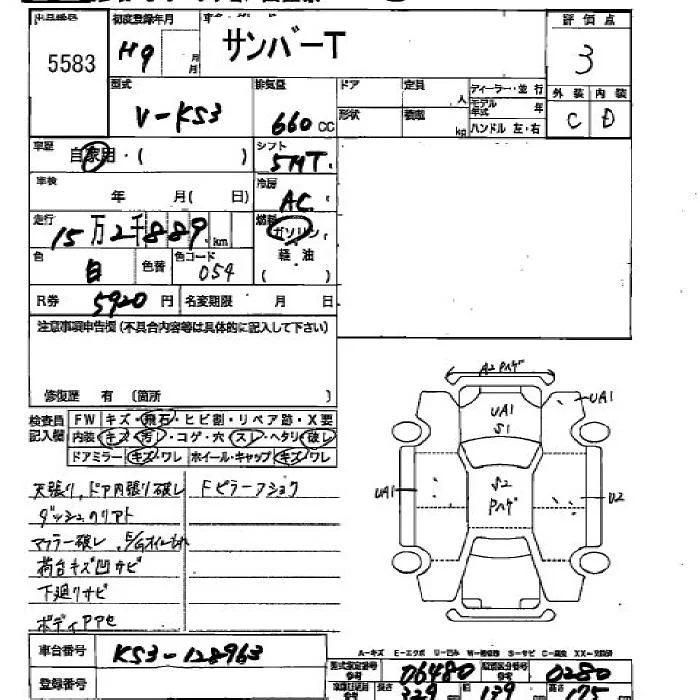 初度登録年月
5583
H9
月
月
サンバーT
評価点
3
型式
V-KS3
排気量
660 CC
ドア
定員
人
形状
積載
kg
ディーラー・並行
モデル年式
年
ハンドル 左・右
外装
内装
C
D
車歴
自家用・( )
シフト
5MT.
車検
年 月( 日)
冷房
AC
走行
15万2千889 km
燃料
ガソリン
軽油
( )
色
白
色替
色コード
054
R券
5920 円
名変期限 月 日
注意事項申告欄(不具合内容等は具体的に記入して下さい)
修復歴 有 〔箇所 〕
検査員
記入欄
FW キズ・飛石・ヒビ割・リペア跡・X要
内装 キズ・汚レ・コゲ・穴・スレ・ヘタリ・破レ
ドアミラー キズ・ワレ ホイール・キャップ キズ・ワレ
天張り、ドア内張り破レ
Fピラーフショク
ダッシュクリアト
マフラー破レ
荷台キズ凹サビ
下廻りサビ
ボディPPセ
A2 Pハゲ
UA1
S1
UA1
S2
Pハゲ
UA1
U2
車台番号
KS3-128963
登録番号
A-キズ E-エクボ U-凹み W-補修跡 S-サビ C-腐食 XX-交換済
型式指定番号
06480
類別区分番号
0280
長さ
329
幅
139
高さ
175